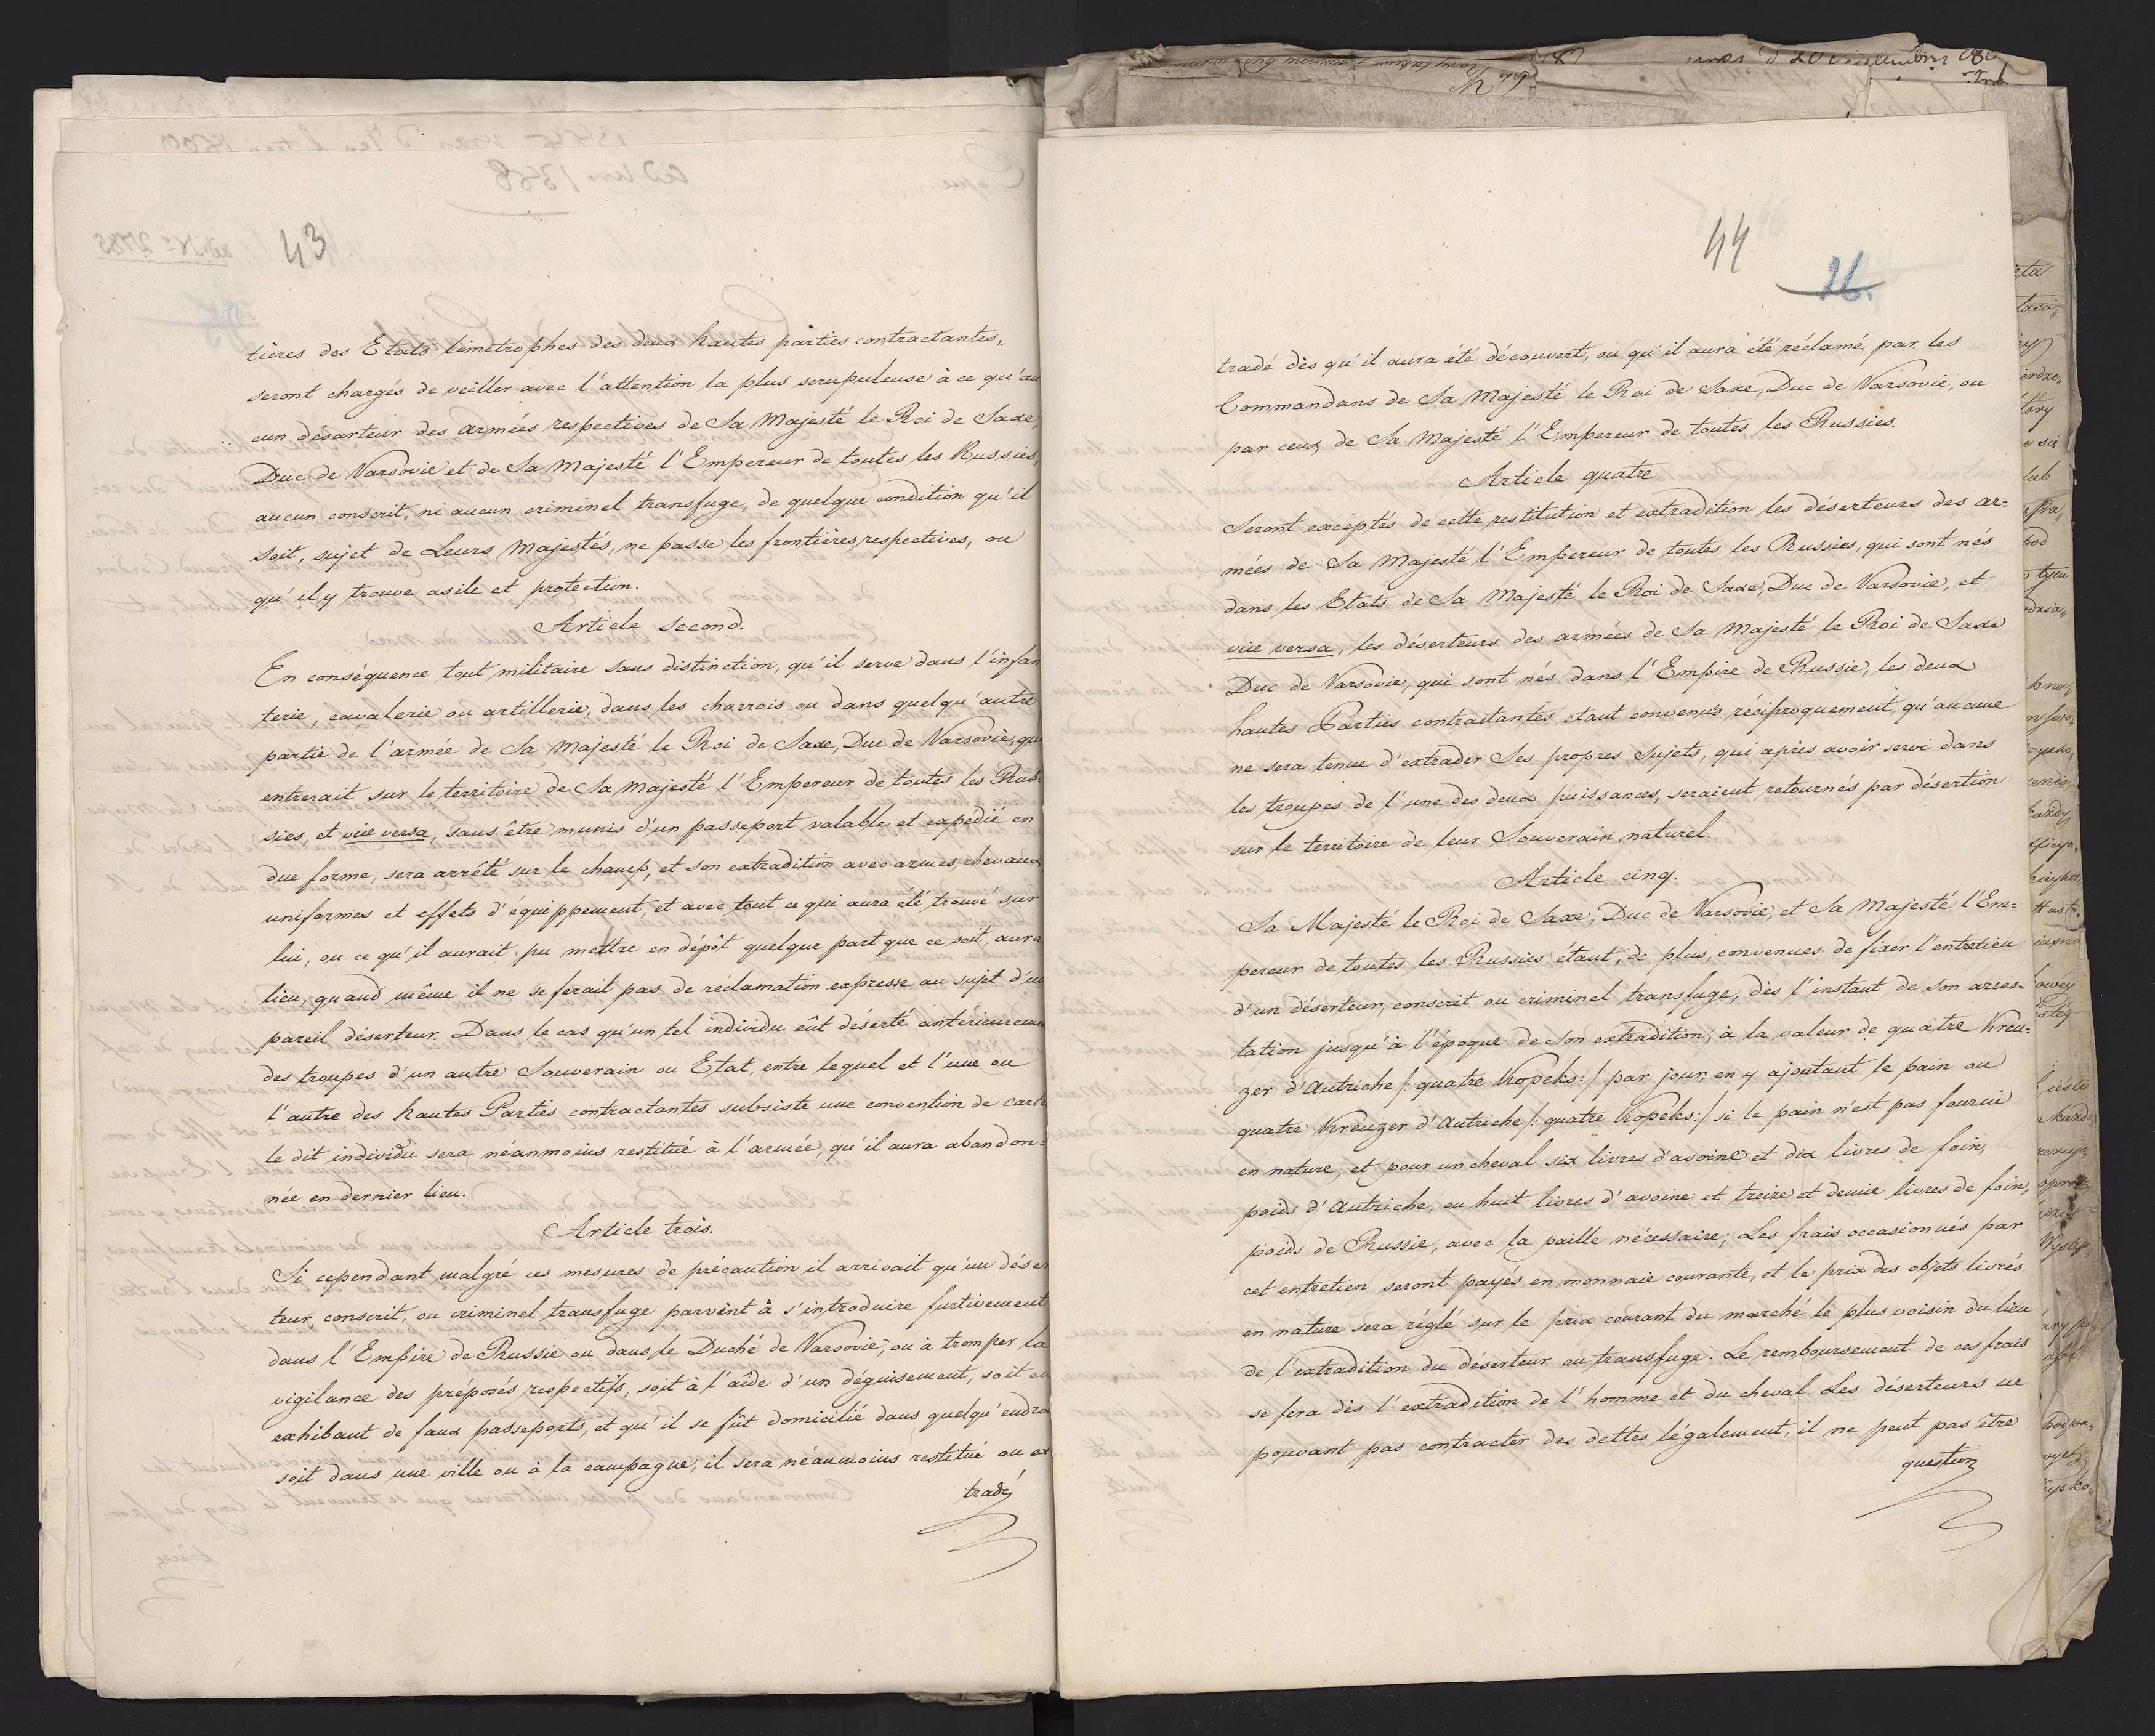 43
tières des Etats limitrophes des deux hautes parties contractantes,
seront chargés de veiller avec l'attention la plus scrupuleuse à ce qu'au
cun désarteur des armées respectives de Sa Majesté le Roi de Saxe,
Duc de Varsovie et de Sa Majesté l'Empereur de toutes les Russies,
aucun conscrit, ni aucun criminel transfuge, de quelque condition qu'il
soit, sujet de Leurs Majestés, ne passe les frontières respectives, ou
qu'il y trouve asile et protection.
Article second.
En conséquence tout militaire sans distinction, qu'il serve dans l'infan
terie, cavalerie ou artillerie, dans les charrois ou dans quelqu'autre
partie de l'armée de Sa Majesté le Roi de Saxe, Duc de Varsovie, qui
entrerait sur le territoire de Sa Majesté l'Empereur de toutes les Rus-
sies, et vice versa, sans être munis d'un passeport valable et expedié en
due forme, sera arrêté sur le champ, et son extradition avec armes, chevaux
uniformes et effets d'équippement, et avec tout ce qui aura été trouvé sur
lui, ou ce qu'il aurait pu mettre en dépôt quelque part que ce soit, aura
lieu, quand même il ne se ferait pas de réclamation expresse au sujet d'un
pareil déserteur. Dans le cas qu'un tel individu eût déserté antérieureme
des troupes d'un autre Souverain ou Etat, entre lequel et l'une ou
l'autre des hautes Parties contractantes subsiste une convention de carte
le dit individu sera néanmoins restitué à l'armée, qu'il aura abandon=
née en dernier lieu.
Article trois.
Si cependant malgré ces mesures de précaution il arrivait qu'un déser
teur, conscrit, ou criminel transfuge parvînt à s'introduire furtivement
dans l'Empire de Russie ou dans le Duché de Varsovie, ou à tromper la
vigilance des préposés respectifs, soit à l'aîde d'un déguisement, soit en
exhibant de faux passeports, et qu'il se fût domicilié dans quelqu'endro
soit dans une ville ou à la campagne, il sera néanmoins restitué ou ex
tradé
44
26.
tradé dès qu'il aura été découvert, ou qu'il aura été réclamé par les
Commandans de Sa Majesté le Roi de Saxe, Duc de Varsovie, ou
par ceux de Sa Majesté l'Empereur de toutes les Russies.
Article quatre.
Seront exceptés de cette restitution et extradition les déserteurs des ar=
mées de Sa Majesté l'Empereur de toutes les Russies, qui sont nés
dans les Etats de Sa Majesté le Roi de Saxe, Duc de Varsovie, et
vice versa, les déserteurs des armées de Sa Majesté le Roi de Saxe
Duc de Varsovie, qui sont nés dans l'Empire de Russie, les deux
hautes Parties contractantes étant convenus réciproquement, qu'aucune
ne sera tenue d'extrader Ses propres Sujets, qui après avoir servi dans
les troupes de l'une des deux puissances, seraient retournés par désertion
sur le territoire de leur Souverain naturel.
Article cinq.
Sa Majesté le Roi de Saxe, Duc de Varsovie, et Sa Majesté l'Em=
pereur de toutes les Russies étant, de plus, convenues de fixer l'entretien
d'un déserteur, conscrit ou criminel transfuge, dès l'instant de son arres-
tation jusqu'à l'époque de son extradition, à la valeur de quatre Kreu=
zer d'Autriche /: quatre Kopeks :/ par jour, en y ajoutant le pain ou
quatre Kreuzer d'Autriche /: quatre Kopeks :/ si le pain n'est pas fournie
en nature, et pour un cheval six livres d'avoine et dix livres de foin,
poids d'Autriche, ou huit livres d'avoine et treize et demie livres de foin,
poids de Russie, avec la paille nécessaire; Les frais occasionnés par
cet entretien seront payés en monnaie courante, et le prix des objets livrés
en nature sera réglé sur le prix courant du marché le plus voisin du lieu
de l'extradition du déserteur ou transfuge. Le remboursement de ces frais
se fera dès l'extradition de l'homme et du cheval. Les déserteurs ne
pouvant pas contracter des dettes légalement, il ne peut pas être
question